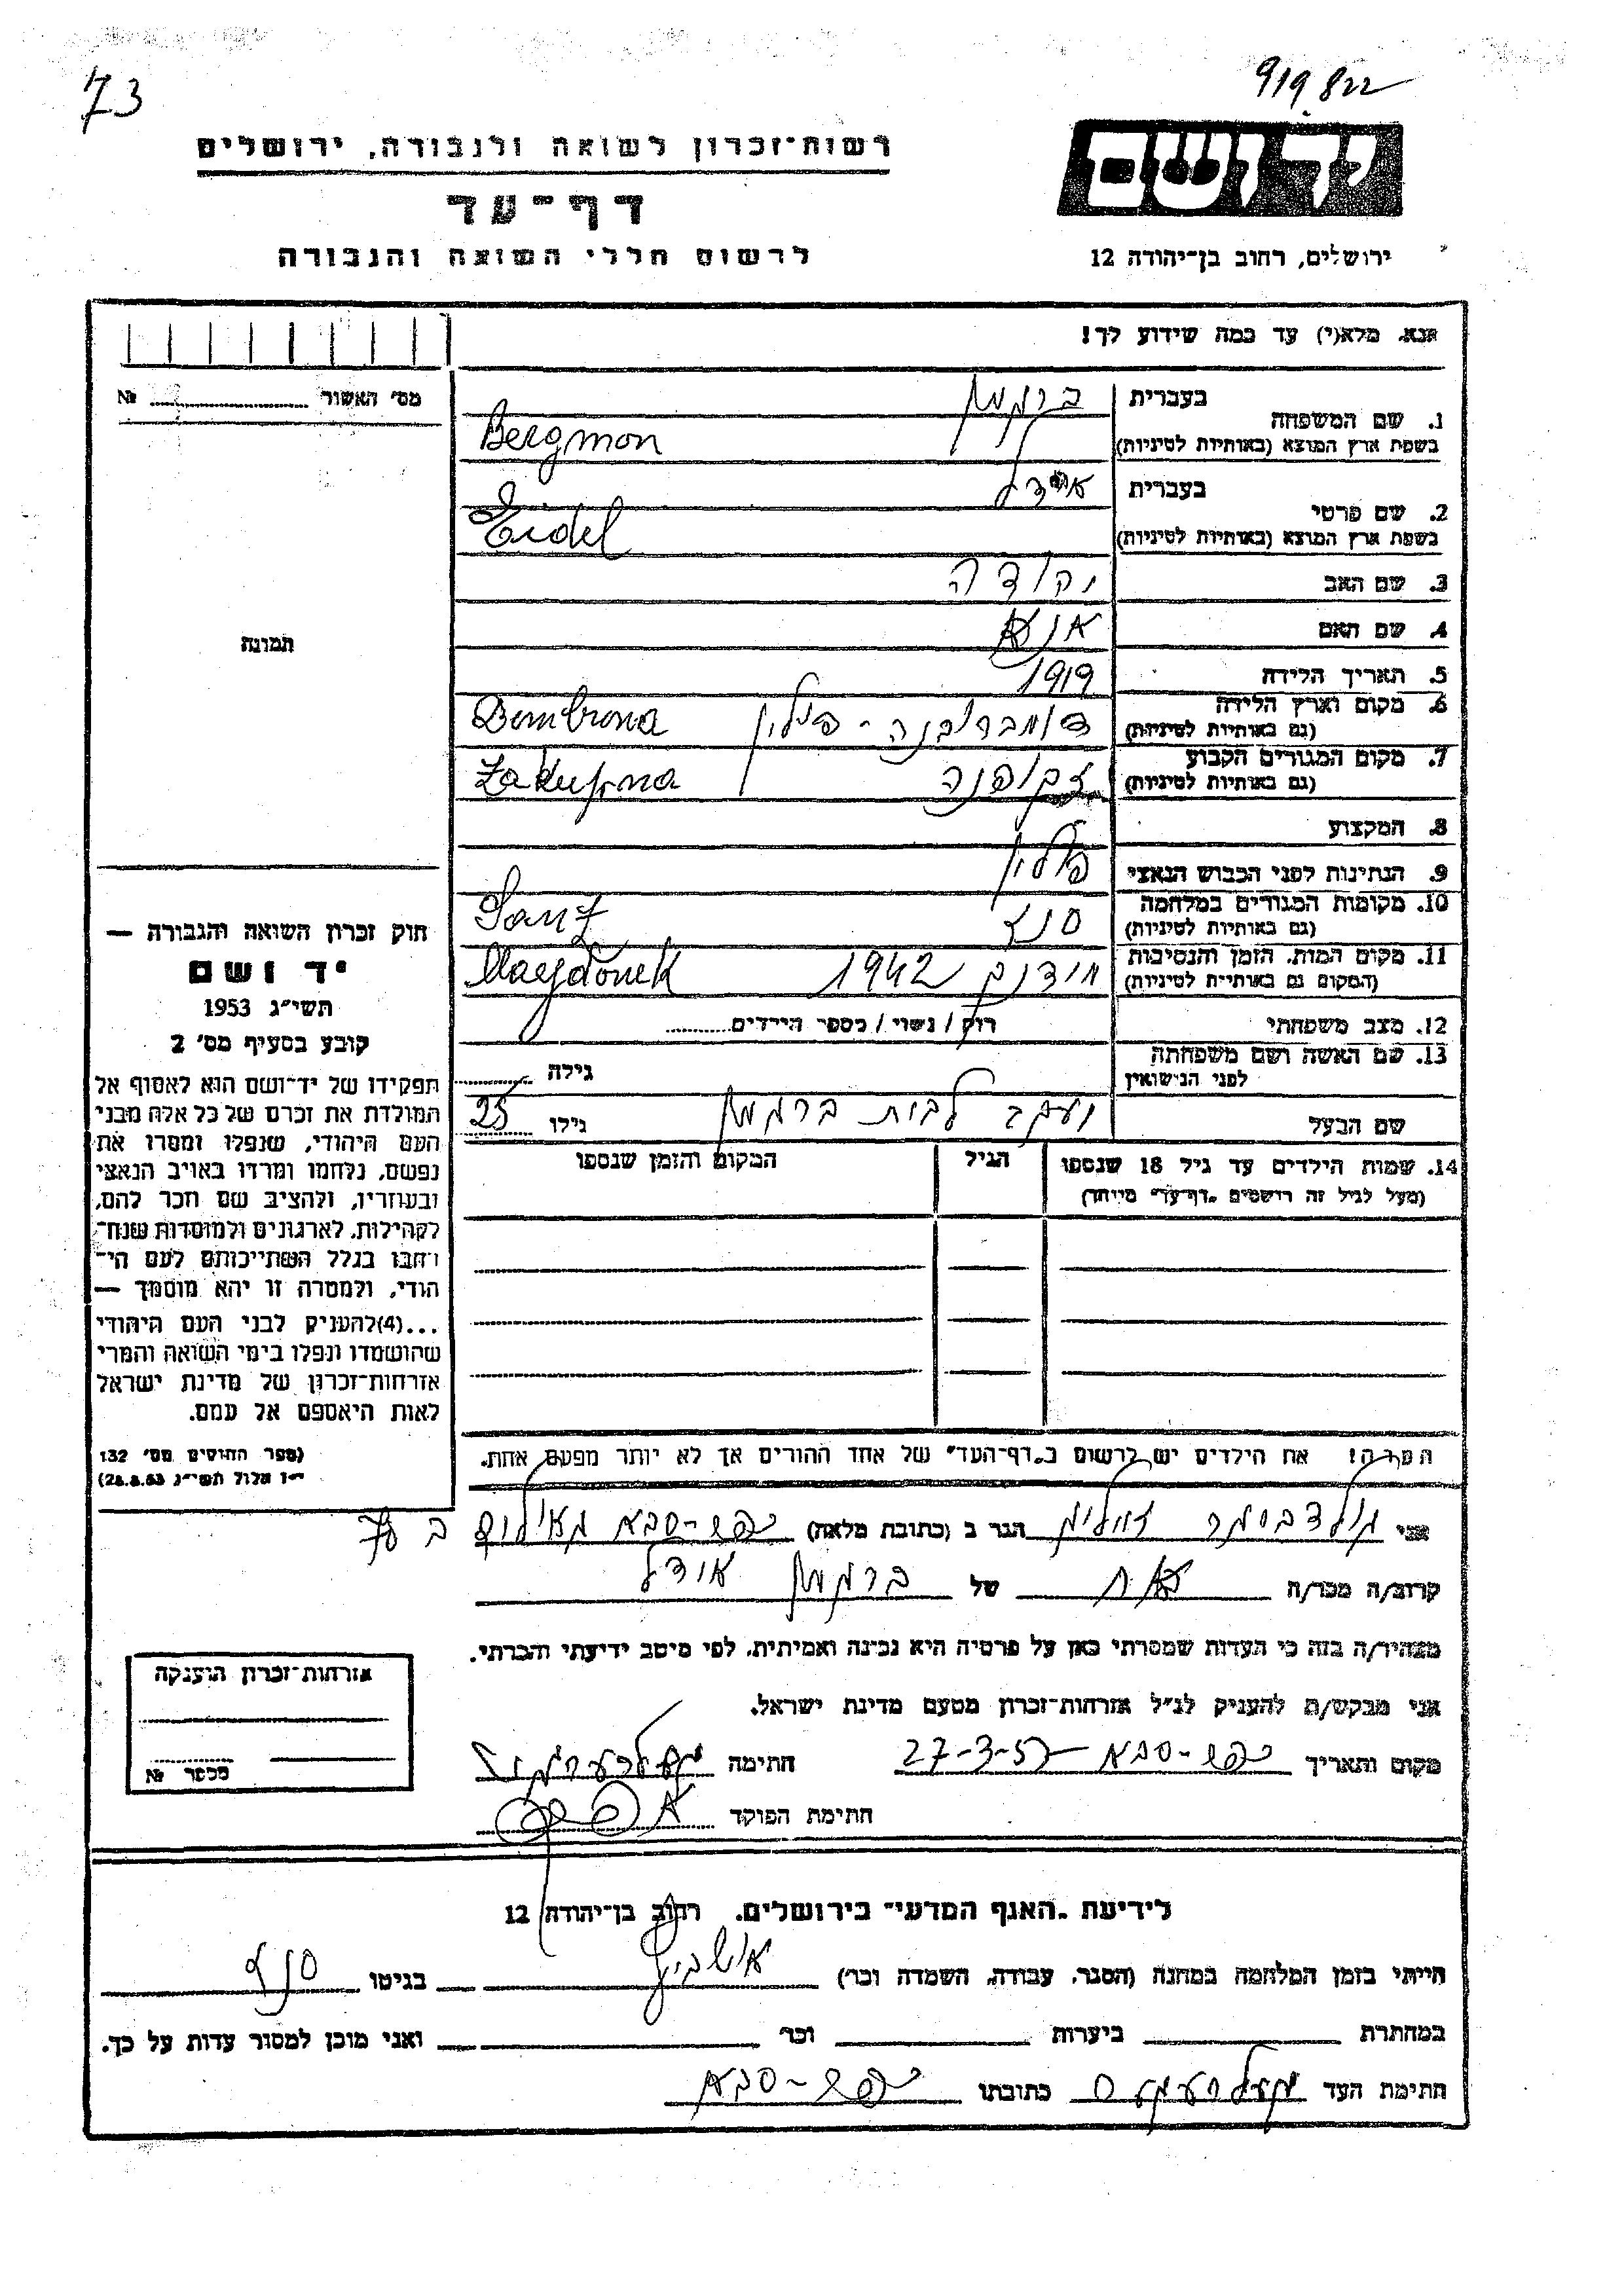 73
919822
יד ושם
רשות־זכרון לשואה ולגבורה, ירושלים
דף־עד
לרשום חללי השואה והגבורה
ירושלים, רחוב בן־יהודה 12
אנא, מלא(י) עד כמה שידוע לך!
מס׳ האשור № 
1. שם המשפחה בעברית ברגמן
בשפת ארץ המוצא (באותיות לטיניות) Bergmon
2. שם פרטי בעברית איידל
בשפת ארץ המוצא (באותיות לטיניות) Eidel
3. שם האב יהודה
4. שם האם אנא
5. תאריך הלידה 1919
6. מקום וארץ הלידה דומברובנה - פולין Dombrona
(גם באותיות לטיניות)
7. מקום המגורים הקבוע זקופנה Zakupna
(גם באותיות לטיניות)
8. המקצוע
9. הנתינות לפני הכבוש הנאצי פולין
10. מקומות המגורים במלחמה סנץ Sanz
(גם באותיות לטיניות)
11. מקום המות, הזמן והנסיבות מידנק 1942 Maydonek
(המקום גם באותיות לטיניות)
12. מצב משפחתי רוק / נשוי / מספר הילדים
13. שם האשה ושם משפחתה
לפני הנישואין גילה
שם הבעל יעקב לבית ברגמן גילו 25
14. שמות הילדים עד גיל 18 שנספו הגיל המקום והזמן שנספו
(מעל לגיל זה רושמים „דף־עד״ מייוחד)
תמונה
חוק זכרון השואה והגבורה —
יד ושם
תשי״ג 1953
קובע בסעיף מס׳ 2
תפקידו של יד־ושם הוא לאסוף אל
המולדת את זכרם של כל אלה מבני
העם היהודי, שנפלו ומסרו את
נפשם, נלחמו ומרדו באויב הנאצי
ובעוזריו, ולהציב שם וזכר להם,
לקהילות, לארגונים ולמוסדות שנח־
רבו בגלל השתייכותם לעם הי־
הודי, ולמטרה זו יהא מוסמך —
...(4)להעניק לבני העם היהודי
שהושמדו ונפלו בימי השואה והמרי
אזרחות־זכרון של מדינת ישראל
לאות היאספם אל עמם.
(ספר החוקים מס׳ 132
י״ז אלול תשי״ג 28.8.53)
הערה! את הילדים יש לרשום ב„דף־העד״ של אחד ההורים אך לא יותר מפעם אחת.
אני הגר ב (כתובת מלאה) כפר-סבא
קרוב/ה מכר/ה אח של ברגמן אידל
מצהיר/ה בזה כי העדות שמסרתי כאן על פרטיה היא נכונה ואמיתית, לפי מיטב ידיעתי והכרתי.
אני מבקש/ת להעניק לנ״ל אזרחות־זכרון מטעם מדינת ישראל.
מקום ותאריך כפר-סבא 27-3-57 חתימה
חתימת הפוקד
אזרחות־זכרון הוענקה
מספר №
לידיעת „האגף המדעי״ בירושלים, רחוב בן־יהודה 12
הייתי בזמן המלחמה במחנה (הסגר, עבודה, השמדה וכו׳) אושביץ בגיטו סנץ
במחתרת ביערות וכו׳ ואני מוכן למסור עדות על כך.
חתימת העד כתובתו כפר-סבא